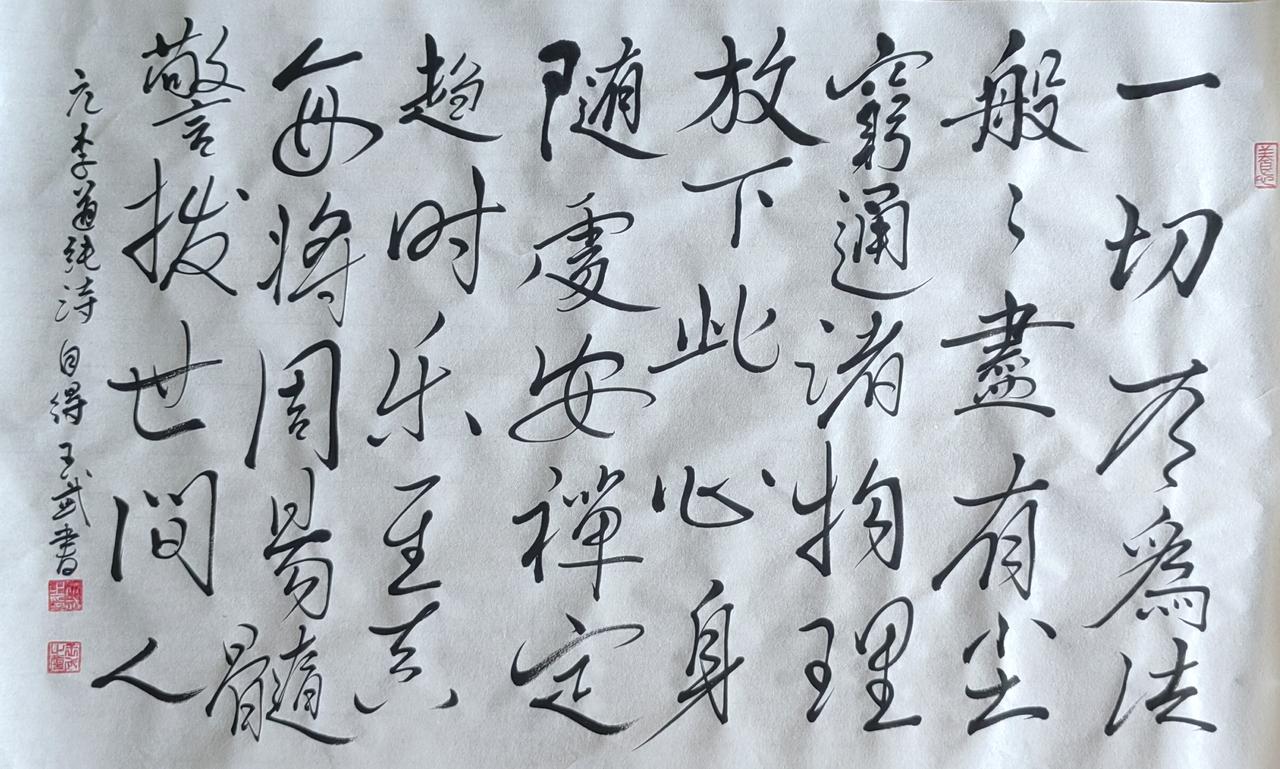 一切有爲法
般々盡有尘
窮通诸物理
放下此心身
随處安禪定
趋时乐至真
每将周易髓
警拨世间人
元李道純诗 自得 王武書